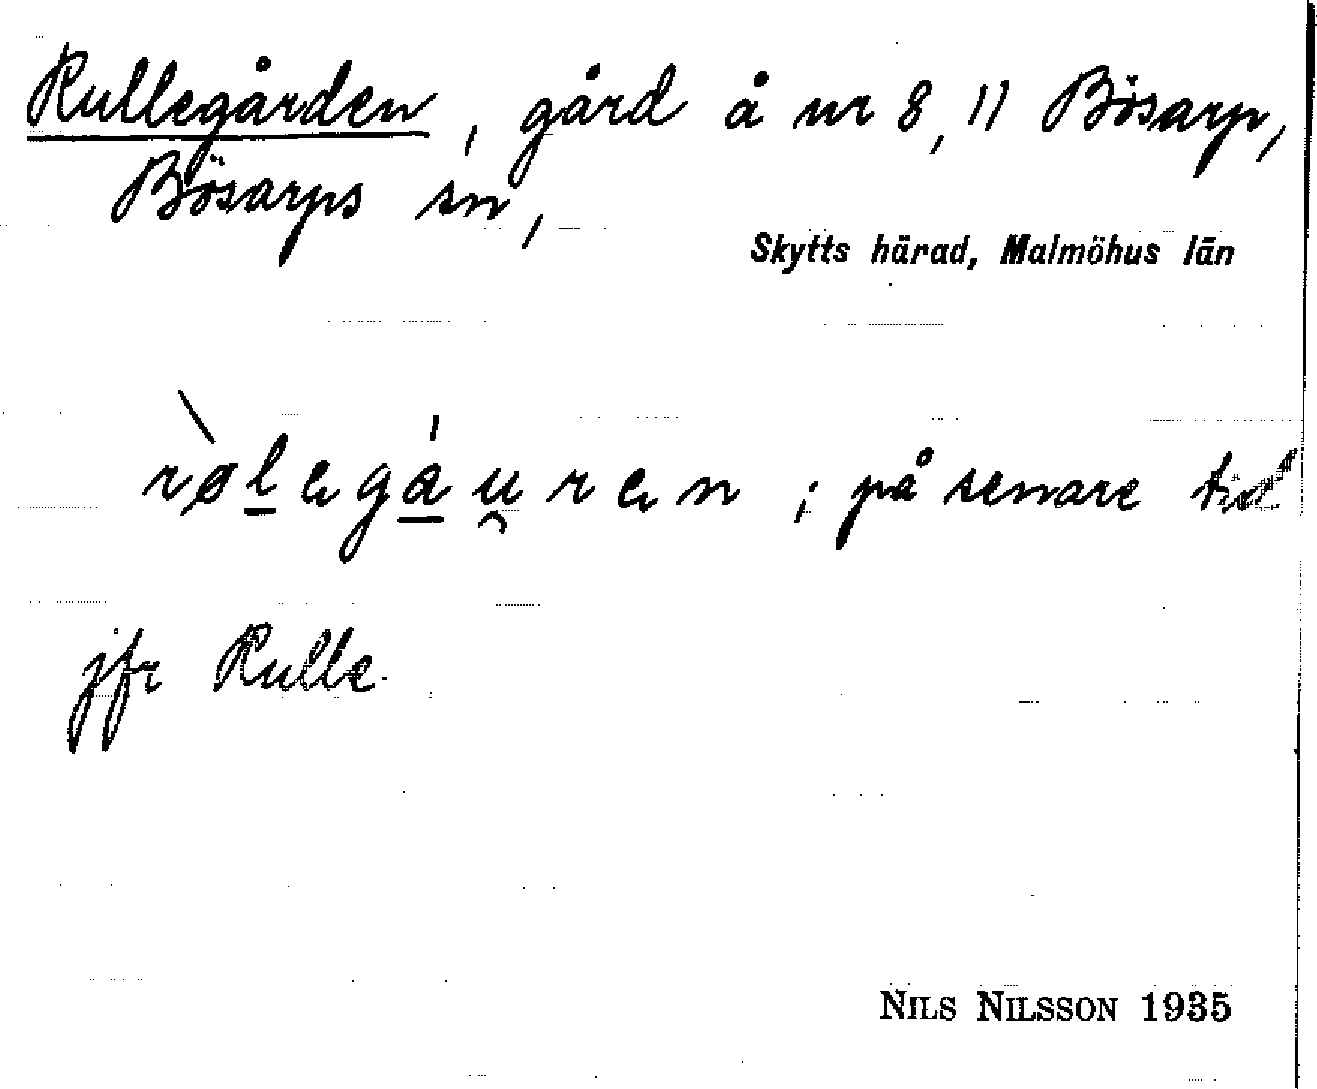 Rullegården, gård å nr 8, 11 Bösarp,
Bösarps sn,
Skytts härad, Malmöhus län
rø̀legáu̯ren ; på senare tid
jfr Rulle.
NILS NILSSON 1935